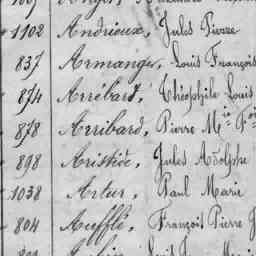 1102 Andrieux, Jules Pierre
837 Armange, Louis François
874 Arrébard, Théophile Louis
878 Arribard, Pierre Mie
898 Aristide, Jules Adolphe
1038 Artur, Paul Marie
804 Auffle, François Pierre J